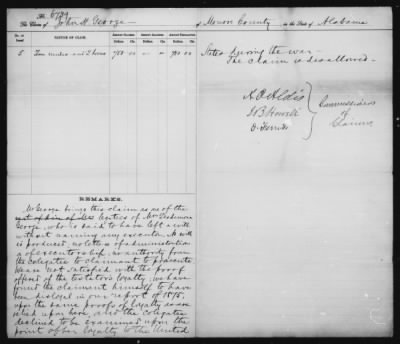 No. 6729
The Claim of John H. George of Monroe County in the State of Alabama
No. of Item. NATURE OF CLAIM. Amount Claimed. Amount Allowed. Amount Disallowed.
Dolls. Cts. Dolls. Cts. Dolls. Cts.
5 Two mules and 2 horses 750 00 — — 750 00
REMARKS.
Mr George brings this claim as one of the
legatees of Mrs
George, who is said to have left a will
without naming any executor. No will
is produced, no letters of administration
or of executorship, no authority from
the colegatees to claimant to prosecute
We are not satisfied with the proof
offered of the testator's loyalty; we have
found the claimant himself to have
been disloyal in our report of 1875,
upon the same proofs of loyalty as are
relied upon here, and the colegatees
declined to be examined upon the
point of their loyalty to the United
States during the war—
The claim is disallowed—
A. O. Aldis
J B Howell
O. Ferriss
Commissioners
of
Claims